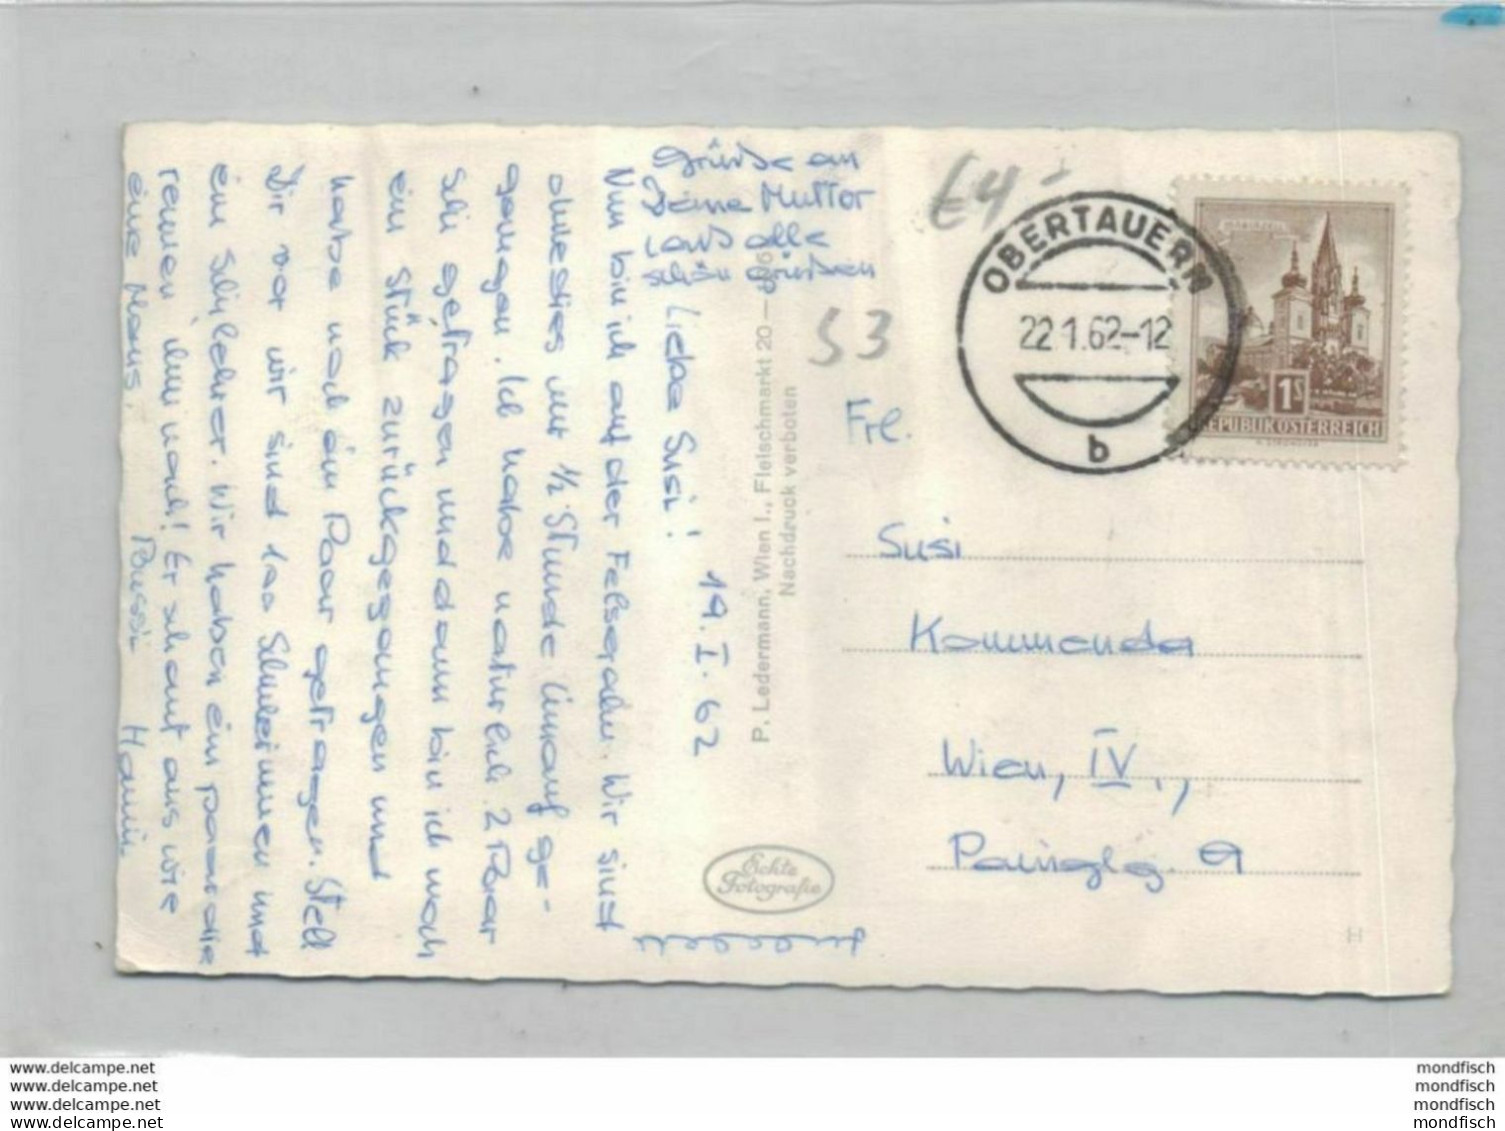 Grüße an
Deine Mutter
Lass alle
schön grüßen
19. I. 62
Liebe Susi!
Nun bin ich auf der Felseralm. Wir sind
ohnedies nur 1/2 Stunde hinauf ge-
gangen. Ich habe natürlich 2 Paar
Schi getragen und dann bin ich noch
ein Stück zurückgegangen und
habe noch ein Paar getragen. Stell
Dir vor wir sind 100 Schülerinnen und
ein Schilehrer. Wir haben ein paar die
rennen ihm nach! Er schaut aus wie
eine Maus.
Bussi Hanni
P. Ledermann, Wien I., Fleischmarkt 20 —
Nachdruck verboten
Echte
Fotografie
€4-
53
OBERTAUERN
22 1.62-12
b
MARIAZELL
1S
REPUBLIK ÖSTERREICH
Frl.
Susi
Kommenda
Wien, IV.,
Paniglg. 9
H
www.delcampe.net
www.delcampe.net
www.delcampe.net
www.delcampe.net
mondfisch
mondfisch
mondfisch
mondfisch